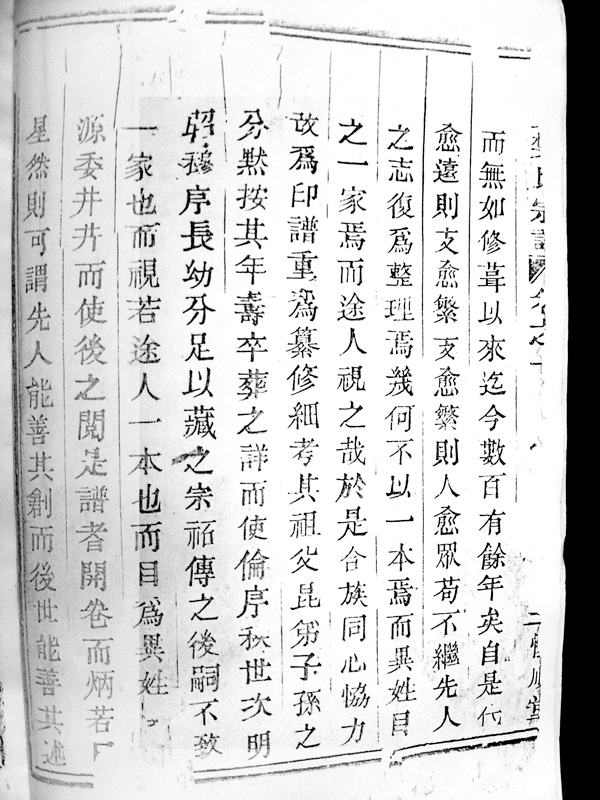 氏宗譜
而無如修葺以來迄今數百有餘年矣自是代
愈遠則支愈繁支愈繁則人愈眾苟不繼先人
之志復為整理焉幾何不以一本焉而異姓目
之一家焉而途人視之哉於是合族同心恊力
故為印譜重為纂修細考其祖父昆弟子孫之
分默按其年壽卒葬之詳而使倫序秩世次明
昭穆序長幼分足以藏之宗祏傳之後嗣不致
一家也而視若途人一本也而目為異姓
源委井井而使後之閱是譜者開卷而炳若日
星然則可謂先人能善其創而後世能善其述